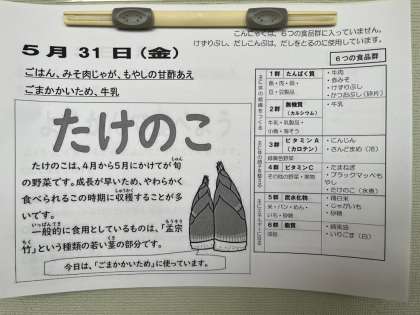 こんにゃくは、6つの食品群に入っていません。
けずりぶし、だしこんぶは、だしをとるのに使用しています。
5月31日(金)
ごはん、みそ肉じゃが、もやしの甘酢あえ
ごまかかいため、牛乳
たけのこ
たけのこは、4月から5月にかけてが旬
の野菜です。成長が早いため、やわらかく
食べられるこの時期に収穫することが多
いです。
一般的に食用としているものは、「孟宗
竹」という種類の若い茎の部分です。
今日は、「ごまかいため」に使っています。
6つの食品群
1群 たんぱく質
魚・肉・卵・
豆・豆製品
・牛肉
・赤みそ
・けずりぶし
・かつおぶし(砕片)
2群 無機質
(カルシウム)
牛乳・乳製品・
小魚・海そう
・牛乳
3群 ビタミンA
(カロテン)
緑黄色野菜
・にんじん
・さんどまめ(冷)
4群 ビタミンC
その他の野菜・果物
・たまねぎ
・ブラックマッペも
やし
・たけのこ(水煮)
5群 炭水化物
米・パン・めん・
いも・砂糖
・精白米
・じゃがいも
・砂糖
6群 脂質
油脂
・綿実油
・いりごま(白)